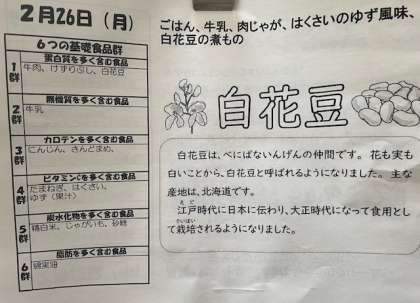 2月26日（月）
6つの基礎食品群
1群
蛋白質を多く含む食品
牛肉、けずりぶし、白花豆
2群
無機質を多く含む食品
牛乳
3群
カロテンを多く含む食品
にんじん、さんどまめ、
4群
ビタミンCを多く含む食品
たまねぎ、はくさい、
ゆず（果汁）
5群
炭水化物を多く含む食品
精白米、じゃがいも、砂糖
6群
脂肪を多く含む食品
綿実油
ごはん、牛乳、肉じゃが、はくさいのゆず風味、
白花豆の煮もの
白花豆
白花豆は、べにばないんげんの仲間です。花も実も
白いことから、白花豆と呼ばれるようになりました。主な
産地は、北海道です。
江戸時代に日本に伝わり、大正時代になって食用とし
て栽培されるようになりました。